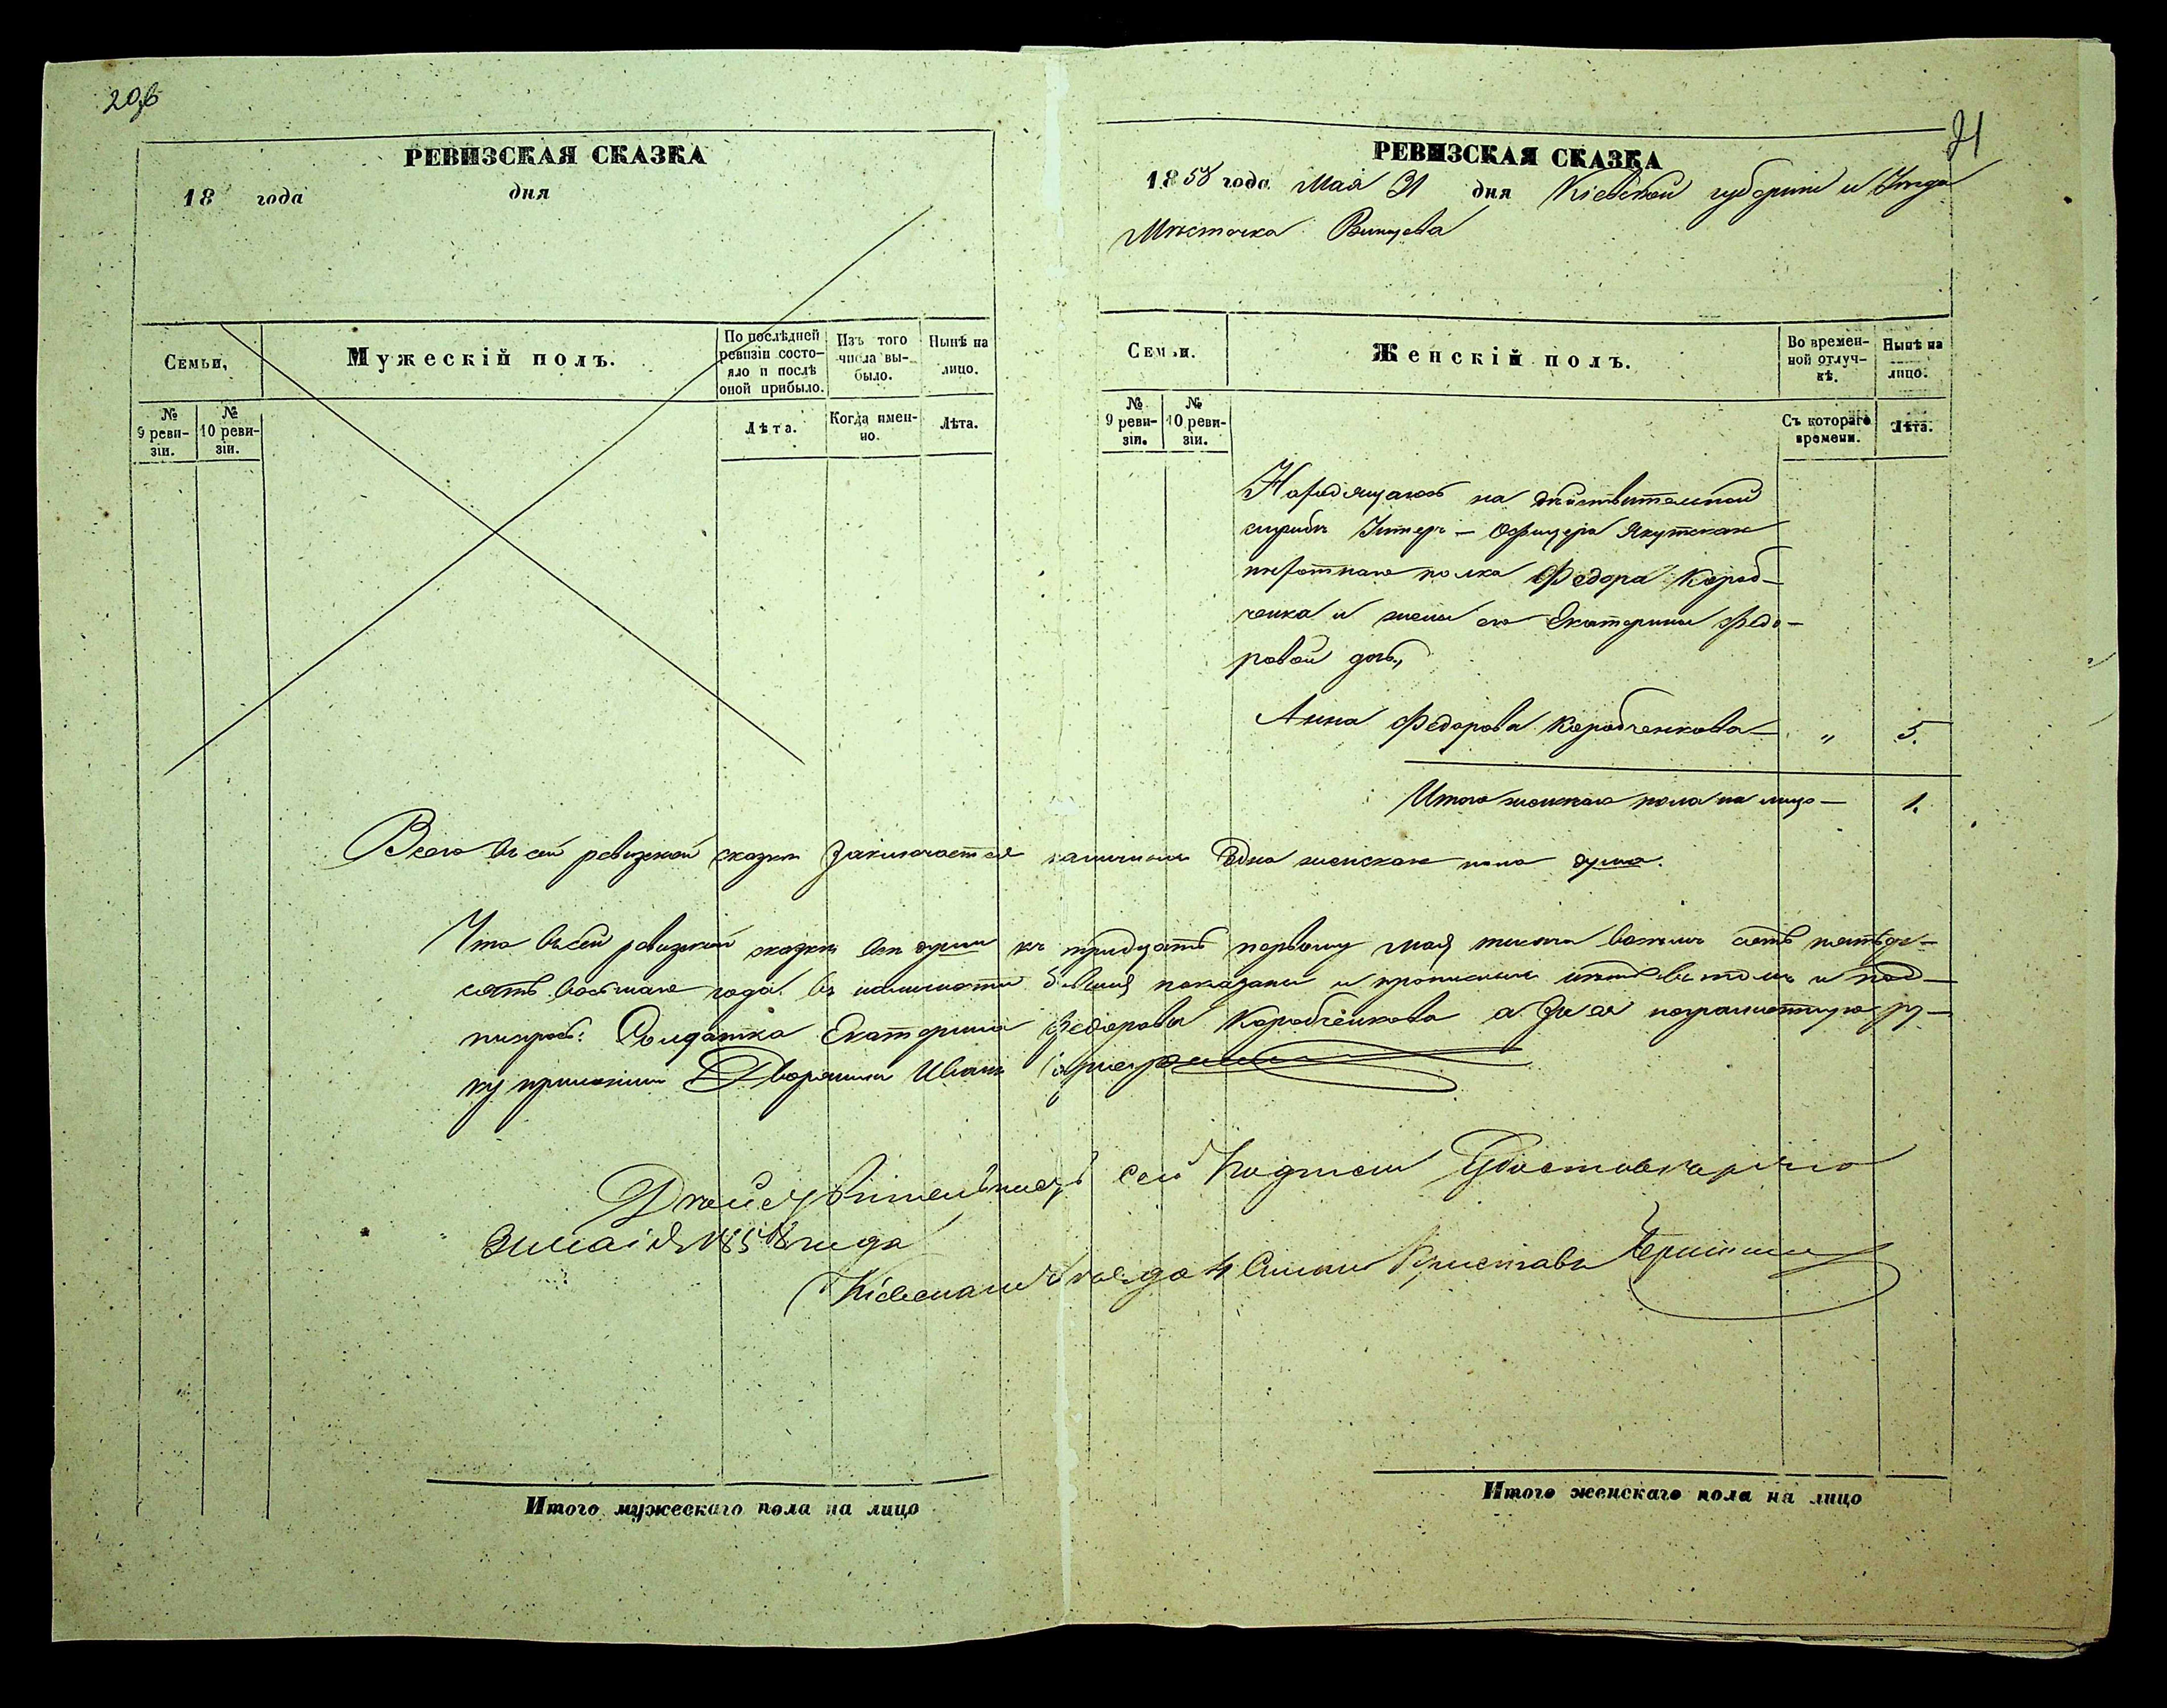 20об
РЕВИЗСКАЯ СКАЗКА
18 года дня
Семьи,
Мужескій полъ.
По послѣдней ревизіи состо-
яло и послѣ оной прибыло.
Изъ того числа вы-
было.
Нынѣ на лицо.
№ 9 реви-
зіи.
№ 10 реви-
зіи.
Лѣта.
Когда имен-
но.
Лѣта.
Итого мужескаго пола на лицо
21
РЕВИЗСКАЯ СКАЗКА
1858 года Мая 31 дня Кіевской губерніи и Уѣзда
Мѣстечка
Семьи.
Женскій полъ.
Во времен-
ной отлуч-
кѣ.
Нынѣ на лицо.
№ 9 реви-
зіи.
№ 10 реви-
зіи.
Съ котораго времени.
Лѣта.
Находящагося на дѣйствительной
службѣ Унтеръ-Офицера Якутскаго
пѣхотнаго полка Федора Короб-
ченка и жены его Екатерины Федо-
ровой дочь,
Анна Федорова Коробченкова — „ 5.
Итого женскаго пола на лицо — 1.
Всего въ сей ревизской сказкѣ заключается наличныхъ одна женскаго пола душа.
Что въ сей ревизской сказкѣ всѣ души къ тридцать первому мая тысяча восемь сотъ пятьде-
сятъ восьмаго года въ наличности бывшія показаны и прописныхъ нѣтъ въ томъ и под-
писуюсь: Солдатка Екатерина Федорова Коробченкова а за нея неграмотную ру-
ку приложилъ Дворянинъ Иванъ
Дѣйствительность сей подписи Удостовѣряю
31 маія 1858 года
Кіевскаго Уѣзда 4 Стана Приставъ
Итого женскаго пола на лицо